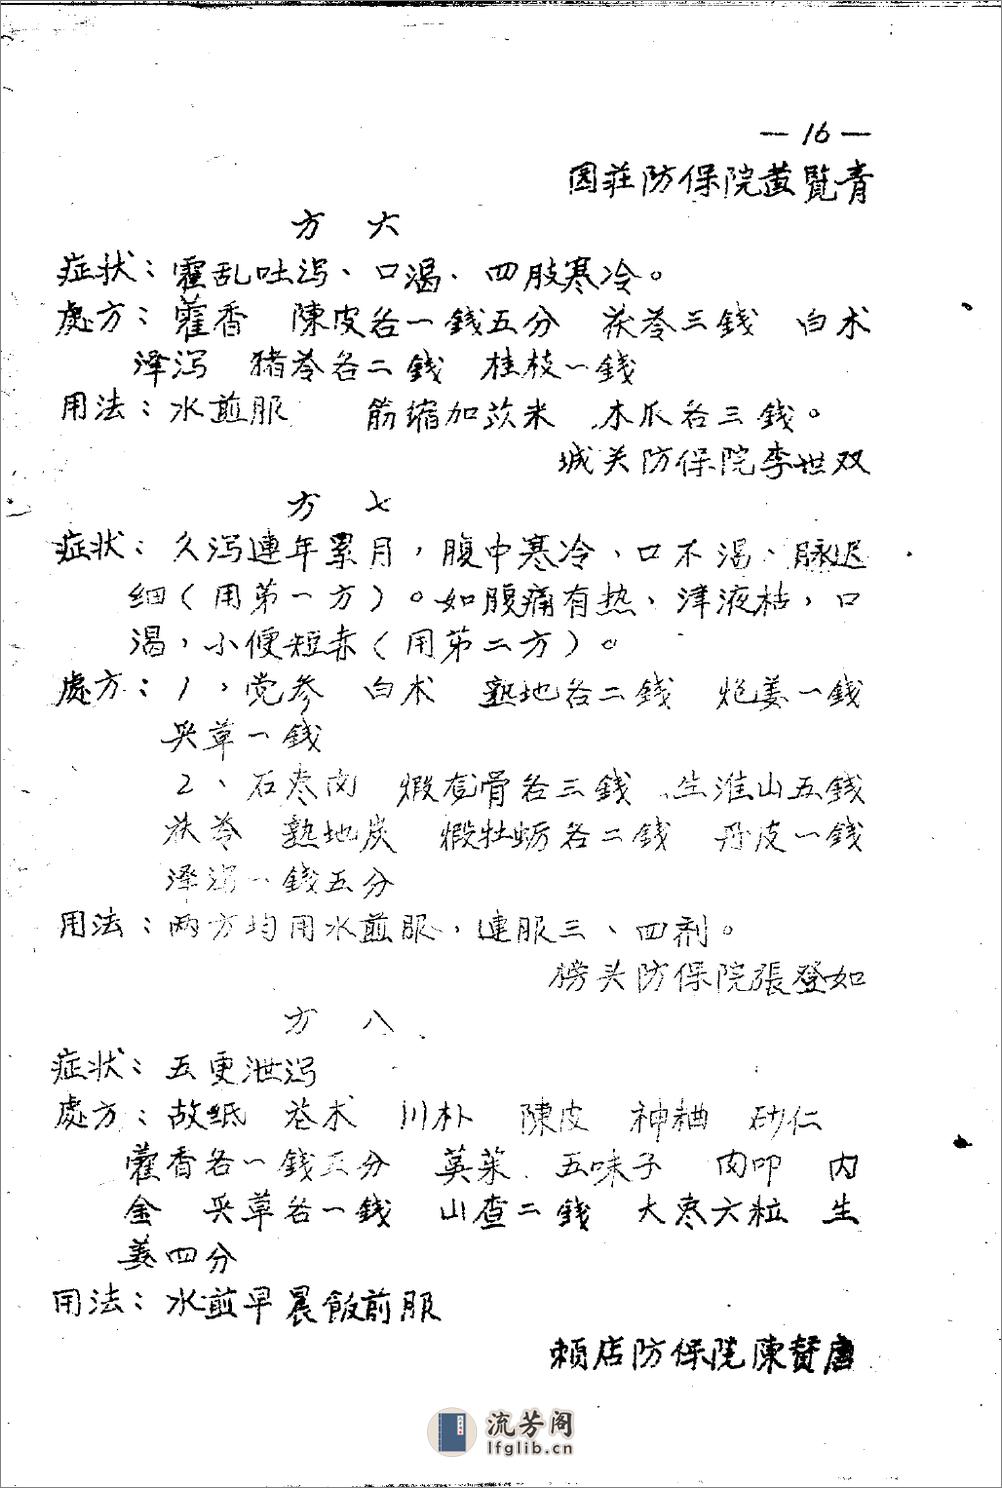 —16—
园莊防保院黄覧青
方 六
症狀：霍乱吐泻、口渴、四肢寒冷。
處方：藿香 陳皮各一錢五分 茯苓三錢 白术
泽泻 猪苓各二錢 桂枝一錢
用法：水煎服 筋缩加苡米 木瓜各三錢。
城关防保院李世双
方 七
症狀：久泻連年累月，腹中寒冷、口不渴、脉迟
细（用第一方）。如腹痛有热、津液枯，口
渴，小便短赤（用第二方）。
處方：1，党参 白术 熟地各二錢 炮姜一錢
炙草一錢
2、石枣肉 煅龙骨各三錢 生淮山五錢
茯苓 熟地炭 煅牡蛎各二錢 丹皮一錢
泽泻一錢五分
用法：两方均用水煎服，連服三、四剂。
榜头防保院張登如
方 八
症狀：五更泄泻
處方：故纸 苍术 川朴 陳皮 神粬 砂仁
藿香各一錢五分 萸茱 五味子 肉叩 内
金 炙草各一錢 山查二錢 大枣六粒 生
姜四分
用法：水煎早晨飯前服
赖店防保院陳賛唐
流芳阁
lfglib.cn